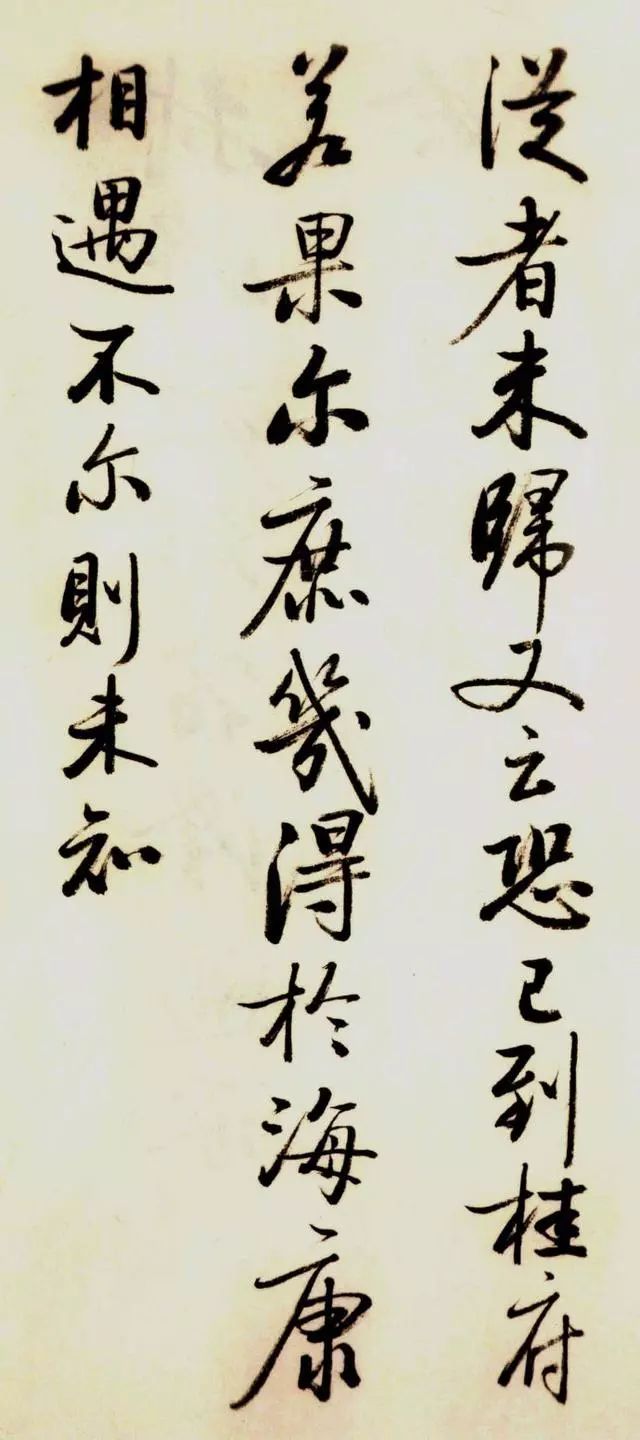 從者未歸又云恐已到桂府
若果尓庶幾得於海康
相遇不尓則未知